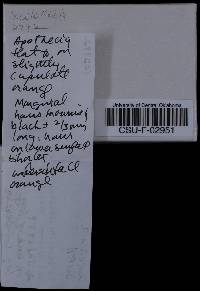 2772
Apothecia
flat or
slightly
cupulate
orange
Marginal
hairs
black ± 2/3mm
long, hairs
on lower surface
shorter
undersurface
orange
University of Central Oklahoma
CSU-F-02951